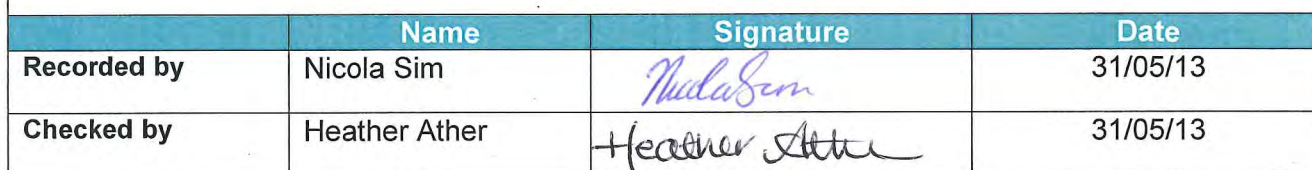 Name Signature Date
Recorded by Nicola Sim Nicola Sim 31/05/13
Checked by Heather Ather Heather Ather 31/05/13